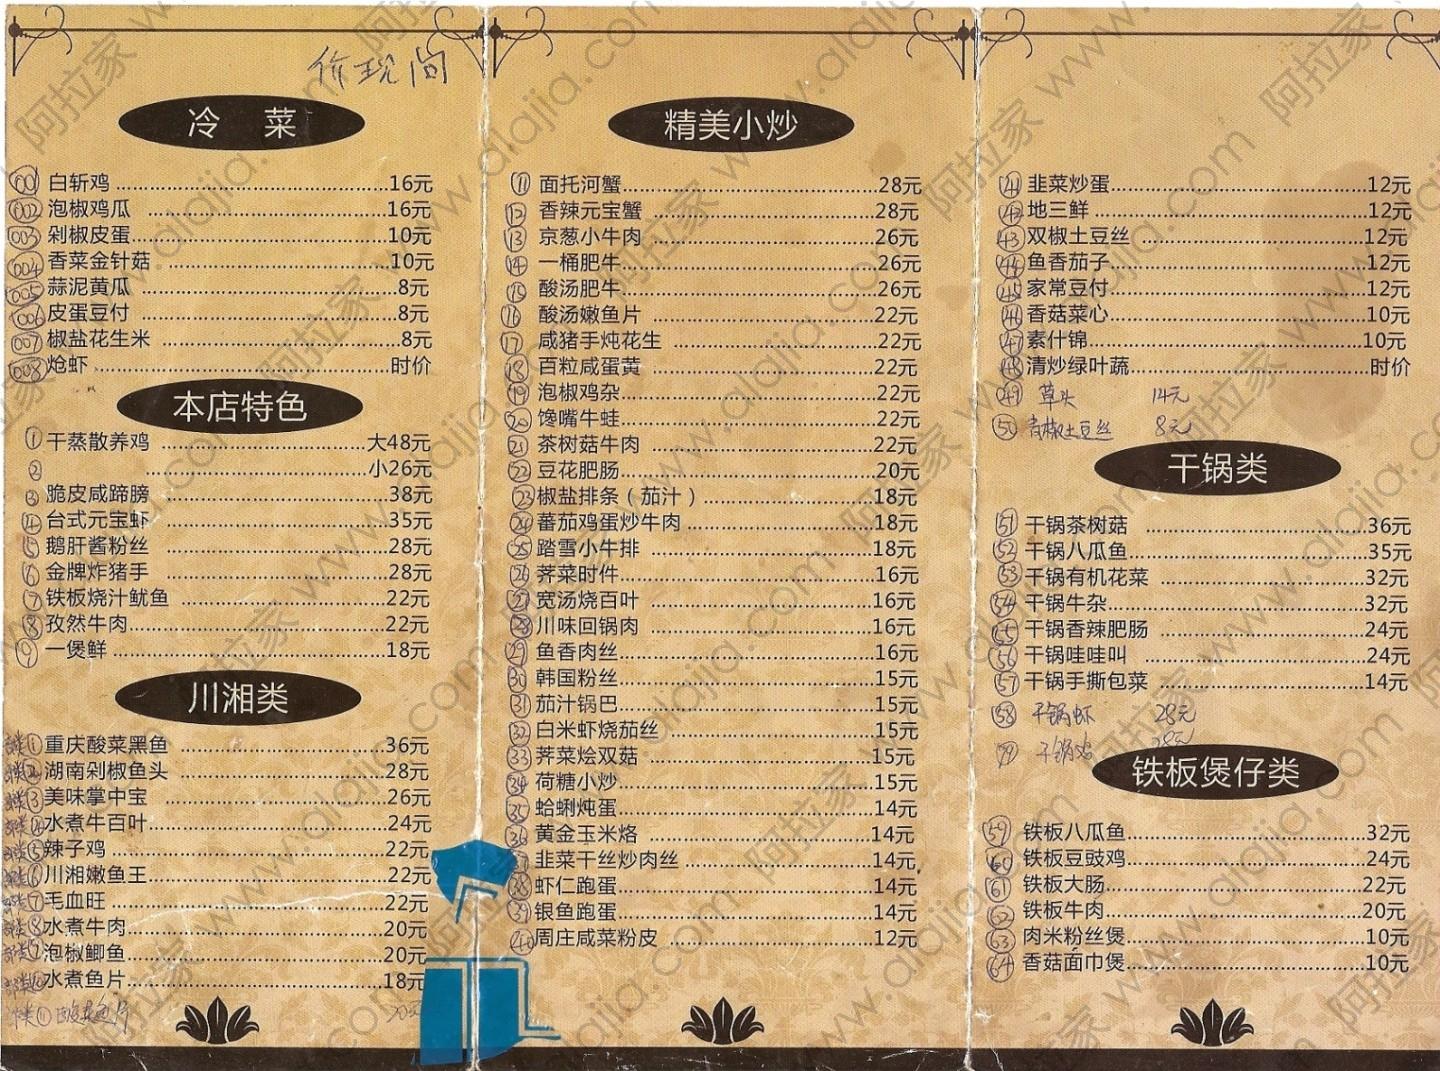 价现问
冷 菜
001 白斩鸡 16元
002 泡椒鸡瓜 16元
003 剁椒皮蛋 10元
004 香菜金针菇 10元
005 蒜泥黄瓜 8元
006 皮蛋豆付 8元
007 椒盐花生米 8元
008 炝虾 时价
本店特色
1 干蒸散养鸡 大48元
2 小26元
3 脆皮咸蹄膀 38元
4 台式元宝虾 35元
5 鹅肝酱粉丝 28元
6 金牌炸猪手 28元
7 铁板烧汁鱿鱼 22元
8 孜然牛肉 22元
9 一煲鲜 18元
川湘类
1 重庆酸菜黑鱼 36元
2 湖南剁椒鱼头 28元
3 美味掌中宝 26元
4 水煮牛百叶 24元
5 辣子鸡 22元
6 川湘嫩鱼王 22元
7 毛血旺 22元
8 水煮牛肉 20元
9 泡椒鲫鱼 20元
水煮鱼片 18元
11 鱼片 20元
精美小炒
11 面托河蟹 28元
12 香辣元宝蟹 28元
13 京葱小牛肉 26元
14 一桶肥牛 26元
15 酸汤肥牛 26元
16 酸汤嫩鱼片 22元
17 咸猪手炖花生 22元
18 百粒咸蛋黄 22元
19 泡椒鸡杂 22元
20 馋嘴牛蛙 22元
21 茶树菇牛肉 22元
22 豆花肥肠 20元
23 椒盐排条（茄汁） 18元
24 蕃茄鸡蛋炒牛肉 18元
25 踏雪小牛排 18元
26 荠菜时件 16元
27 宽汤烧百叶 16元
28 川味回锅肉 16元
29 鱼香肉丝 16元
30 韩国粉丝 15元
31 茄汁锅巴 15元
32 白米虾烧茄丝 15元
33 荠菜烩双菇 15元
34 荷糖小炒 15元
35 蛤蜊炖蛋 14元
36 黄金玉米烙 14元
37 韭菜干丝炒肉丝 14元
38 虾仁跑蛋 14元
39 银鱼跑蛋 14元
40 周庄咸菜粉皮 12元
41 韭菜炒蛋 12元
42 地三鲜 12元
43 双椒土豆丝 12元
44 鱼香茄子 12元
45 家常豆付 12元
46 香菇菜心 10元
47 素什锦 10元
48 清炒绿叶蔬 时价
49 草头 14元
50 青椒土豆丝 8元
干锅类
51 干锅茶树菇 36元
52 干锅八瓜鱼 35元
53 干锅有机花菜 32元
54 干锅牛杂 32元
55 干锅香辣肥肠 24元
56 干锅哇哇叫 24元
57 干锅手撕包菜 14元
58 干锅虾 28元
59 干锅鸡 28元
铁板煲仔类
59 铁板八瓜鱼 32元
60 铁板豆豉鸡 24元
61 铁板大肠 22元
62 铁板牛肉 20元
63 肉米粉丝煲 10元
64 香菇面巾煲 10元
阿拉家 www.alajia.com